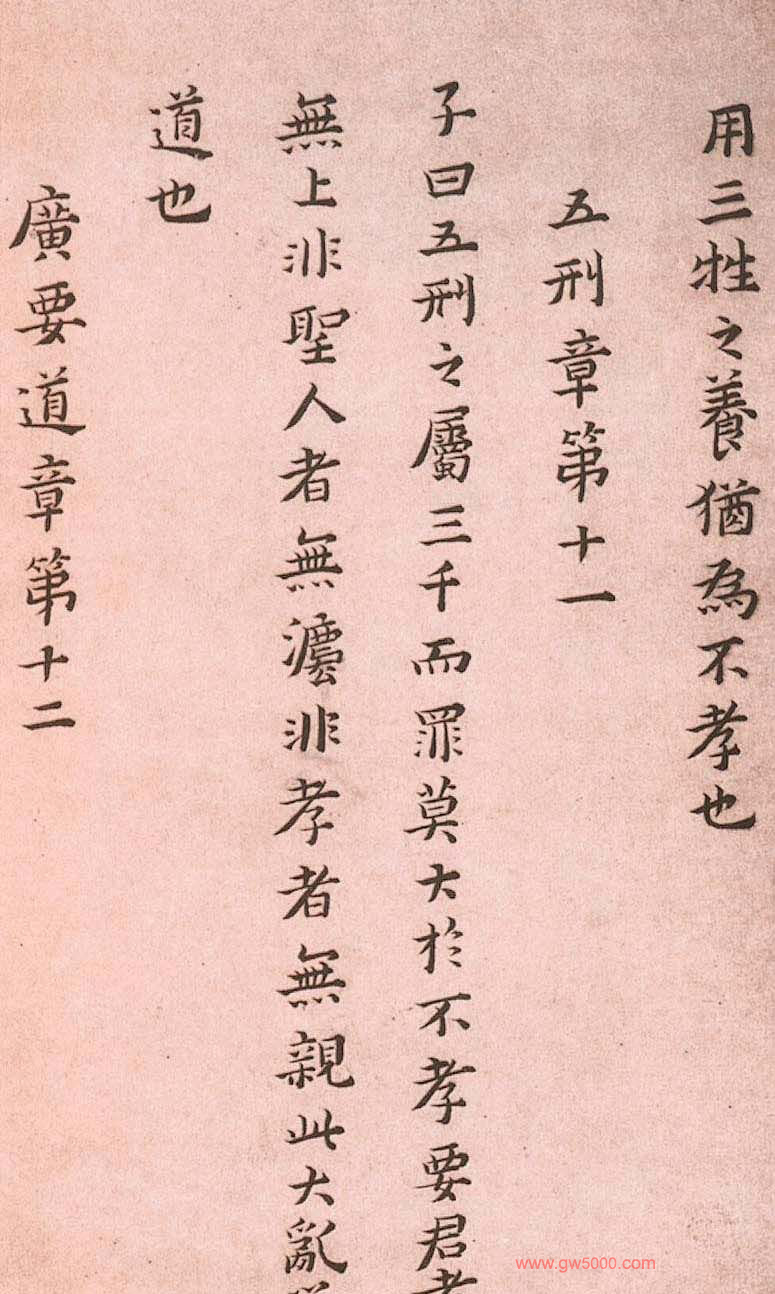 用三牲之養猶為不孝也
五刑章第十一
子曰五刑之屬三千而罪莫大於不孝要君者
無上非聖人者無灋非孝者無親此大亂
道也
廣要道章第十二
www.gw5000.com